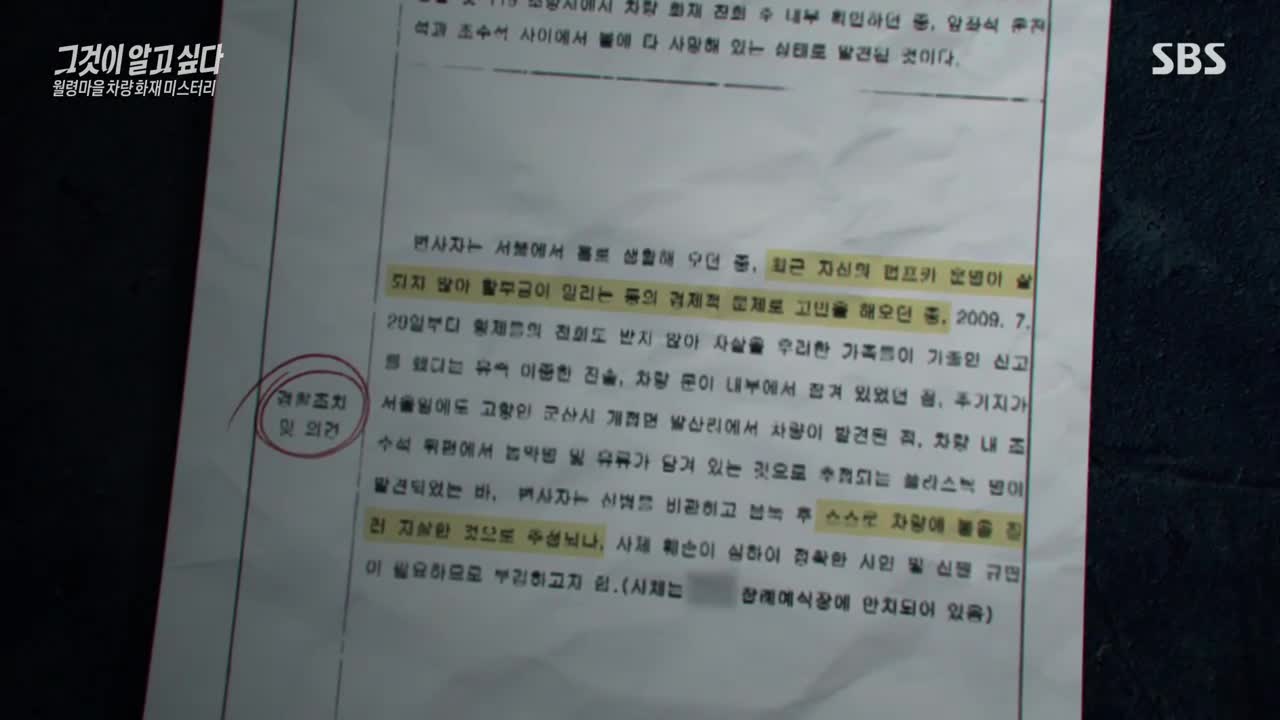 그것이 알고 싶다
월령마을 차량 화재 미스터리
SBS
119 소방서에서 차량 화재 진화 후 내부 확인하던 중, 앞좌석 운전
석과 조수석 사이에서 불에 다 사망해 있는 상태로 발견된 것이다.
변사자는 서울에서 홀로 생활해 오던 중, 최근 자신의 펌프카 운영이 잘
되지 않아 할부금이 밀리는 등의 경제적 문제로 고민을 해오던 중, 2009. 7.
29일부터 형제들의 전화도 받지 않아 자살을 우려한 가족들이 가출인 신고
를 했다는 유족 이종한 진술, 차량 문이 내부에서 잠겨 있었던 점, 주거지가
서울임에도 고향인 군산시 개정면 발산리에서 차량이 발견된 점, 차량 내 조
수석 뒤편에서 농약병 및 유류가 담겨 있는 것으로 추정되는 플라스틱 병이
발견되었는 바, 변사자는 신병을 비관하고 음독 후 스스로 차량에 불을 질
러 자살한 것으로 추정되나, 사체 훼손이 심하여 정확한 사인 및 신원 규명
이 필요하므로 부검하고자 함.(사체는 장례예식장에 안치되어 있음)
경찰조치
및 의견